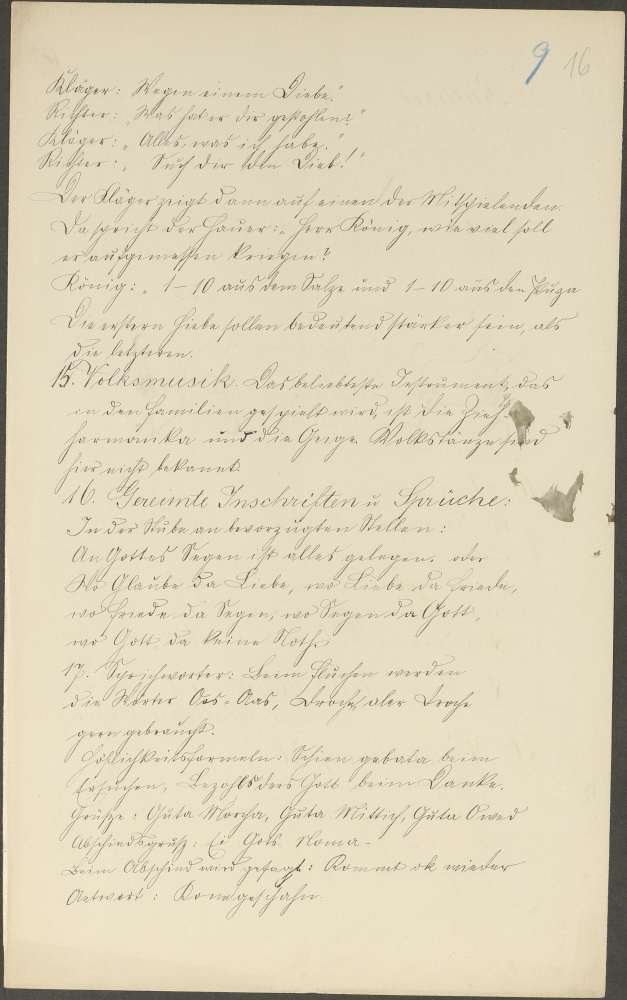 9 16
Kläger: Wegen einem Diebe."
Richter: „Was hat er dir gestohlen?"
Kläger: „Alles, was ich habe."
Richter: „Such dir den Dieb!"
Der Kläger zeigt dann auf einen der Mitspielenden.
Da spricht der Hauer: „Herr König, wie viel soll
er aufgemessen kriegen?
König: „1–10 aus dem Salze und 1–10 aus den
Die erstern Hiebe sollen bedeutend stärker sein, als
die letzteren.
15. Volksmusik. Das beliebteste Instrument, das
in den Familien gespielt wird, ist die Zieh-
harmonika und die Geige. Volkstänze sind
hier nicht bekannt.
16. Gereimte Inschriften u. Sprüche:
In der Stube an bevorzugten Stellen:
An Gottes Segen ist alles gelegen. oder
Wo Glaube da Liebe, wo Liebe da Friede,
wo Friede da Segen, wo Segen da Gott,
wo Gott da keine Noth.
17. Sprichworter: Beim Fluchen werden
die Wörter Oos-Aas, Droche, aler Droche
gern gebraucht.
Höflichkeitsformeln: Schien gebata beim
Ersuchen, Bezohls ders Gott beim Danke.
Grüsse: Guta Morcha, Guta Mittich, Guta Owed
Abschiedsgruß: Ei Gots Noma-
Beim Abschied wird gesagt: Kommt ok wieder
Antwort: